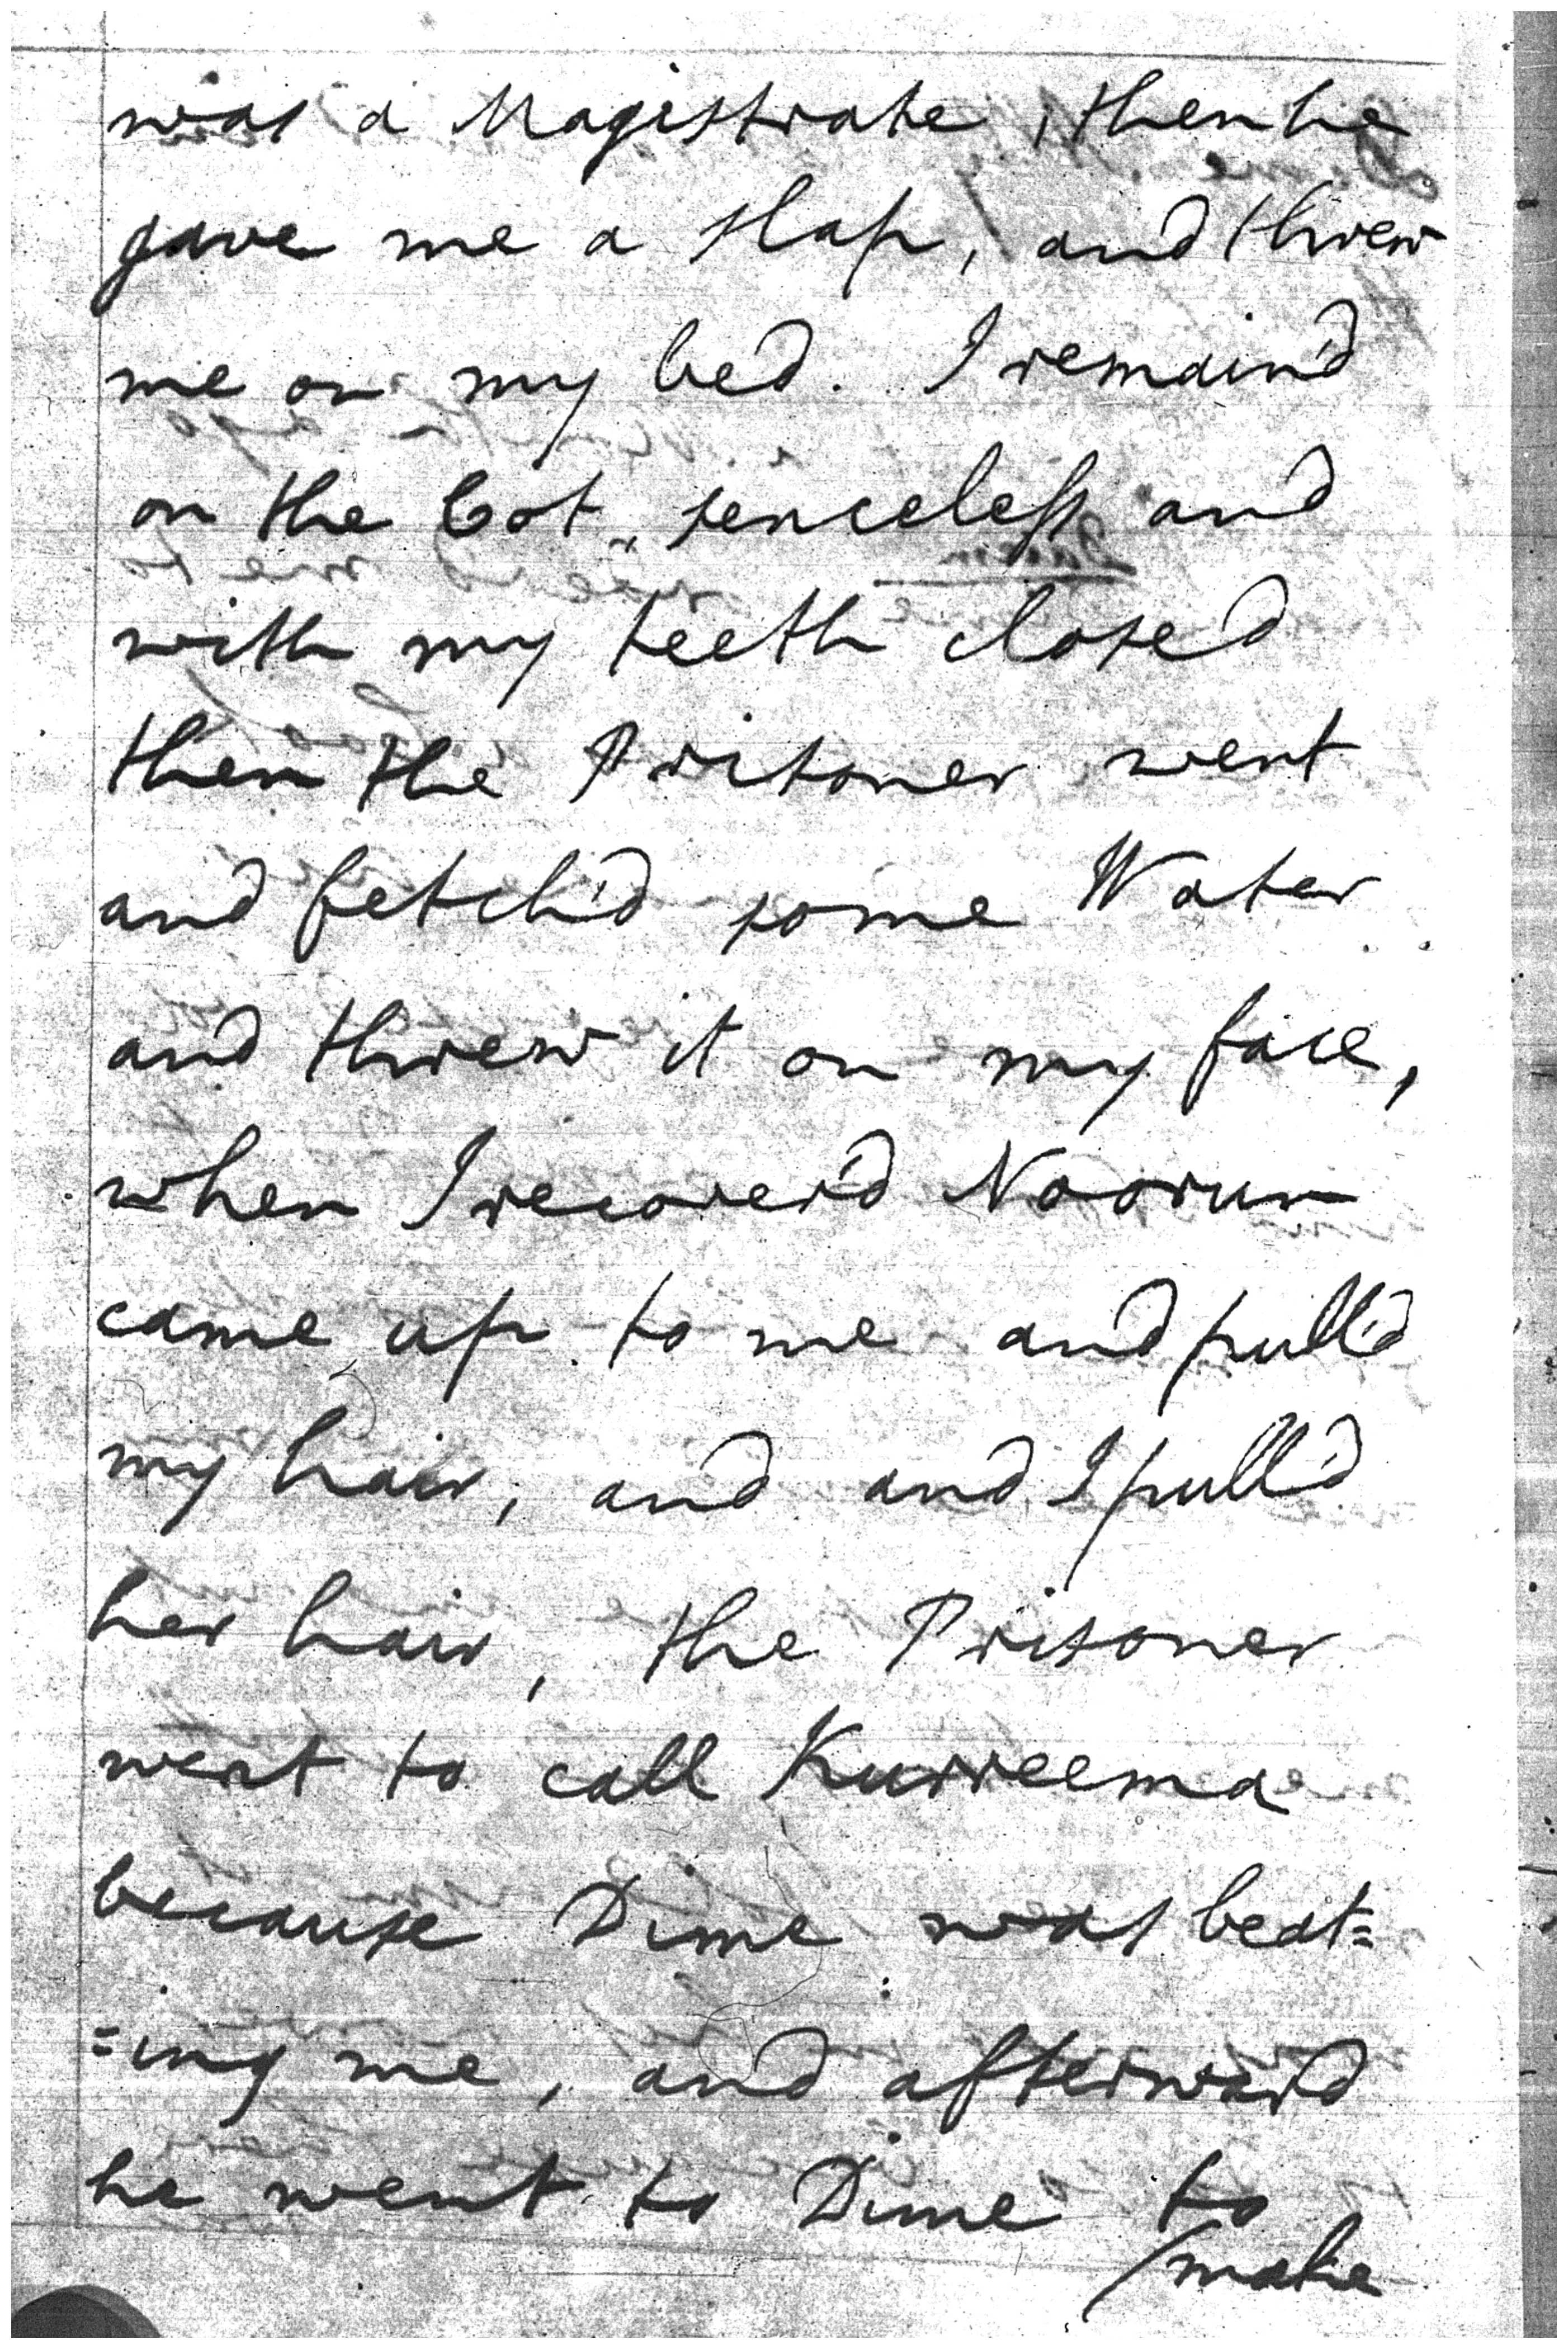 was a Magistrate, then he
gave me a slap, and threw
me on my bed. I remain'd
on the Cot, senceless and
with my teeth closed
then the Prisoner went
and fetch'd some Water
and threw it on my face,
when I recover'd Noorun
came up to me and pull'd
my hair, and and I pull'd
her hair, the Prisoner
went to call Kurreema
because Dime was beat=
=ing me, and afterward
he went to Dime to
make